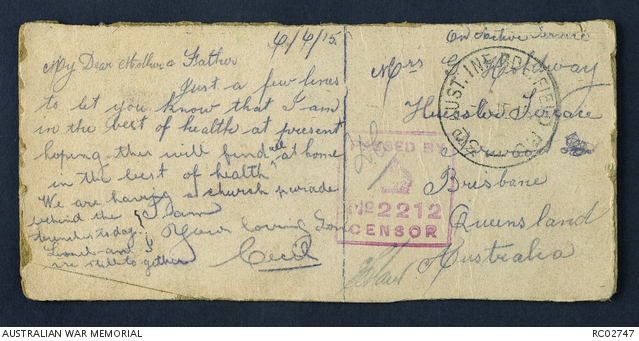 6/6/15.
My Dear Mother & Father
Just a few lines
to let you know that I am
in the best of health at present
hoping this will find all at home
in the best of health
We are having a church parade
behind the
trenches today.
Lionel and I
are still to gether
I am
Your loving Son
Cecil
On Active Service
Mrs G. Holdway
Heussler Terrace
Brisbane
Queensland
Australia
AUST. INF. BDE. FIELD P.O.
PASSED BY
No 2212
CENSOR
AUSTRALIAN WAR MEMORIAL
RC02747